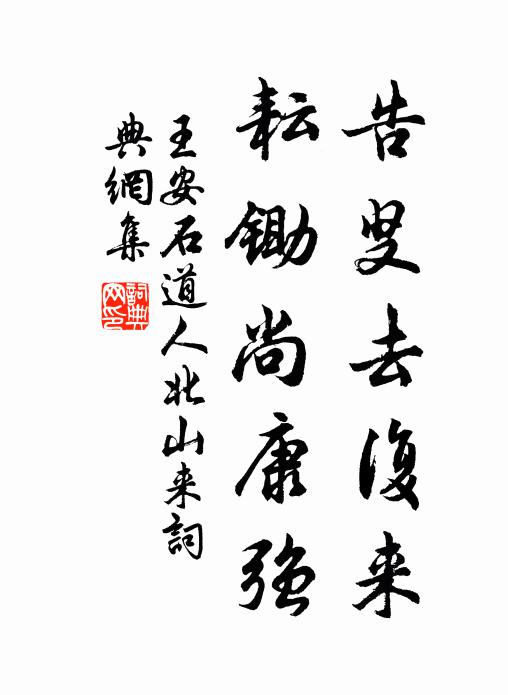 告叟去復来
耘鋤尚康強
王安石道人北山来詞
典網集
詞典網印